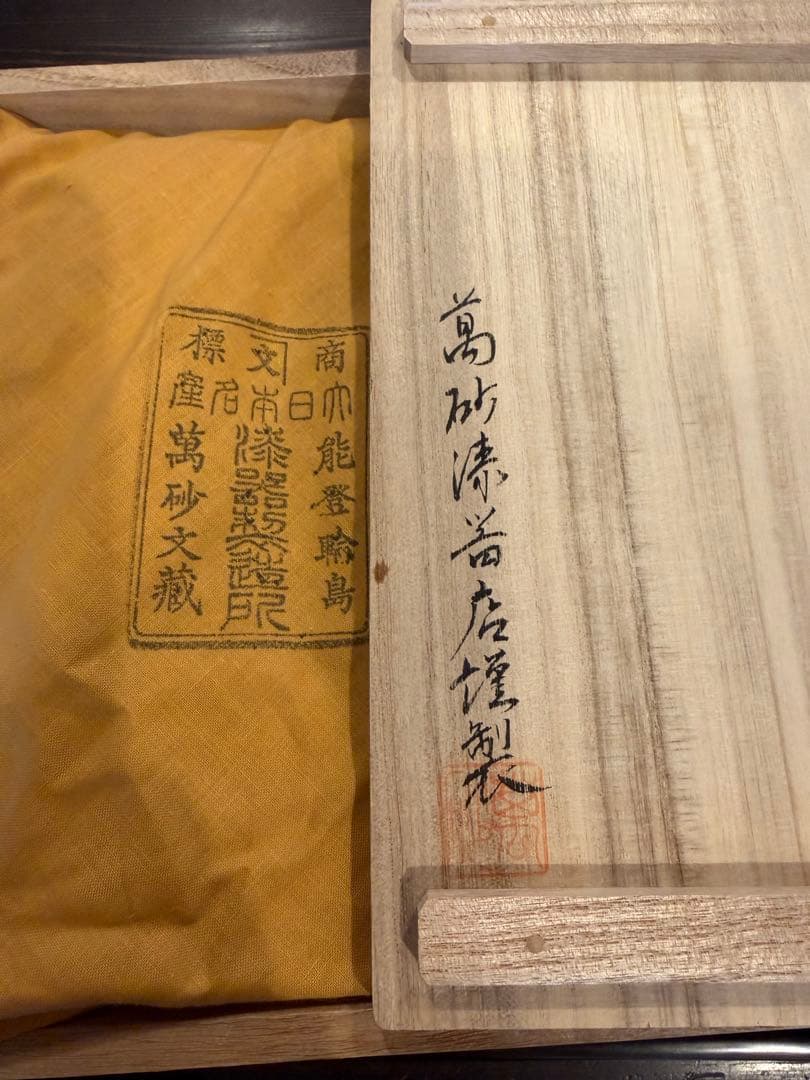 萬砂漆器店謹製
商文標
大日本名産
能登輪島
漆器製造所
萬砂文藏